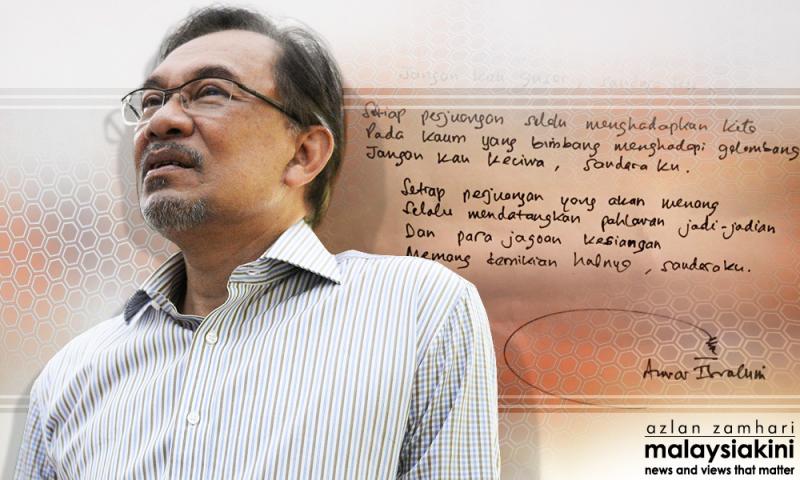 Jangan kau gusar, saudaraku
Setiap perjuangan selalu menghadapkan kita
Pada kaum yang bimbang menghadapi gelombang
Jangan kau keciwa, saudaraku.
Setiap perjuangan yang akan menang
Selalu mendatangkan pahlawan jadi-jadian
Dan para jagoan kesiangan
Memang demikian halnya, saudaraku.
Anwar Ibrahim
azlan zamhari
malaysiakini
news and views that matter